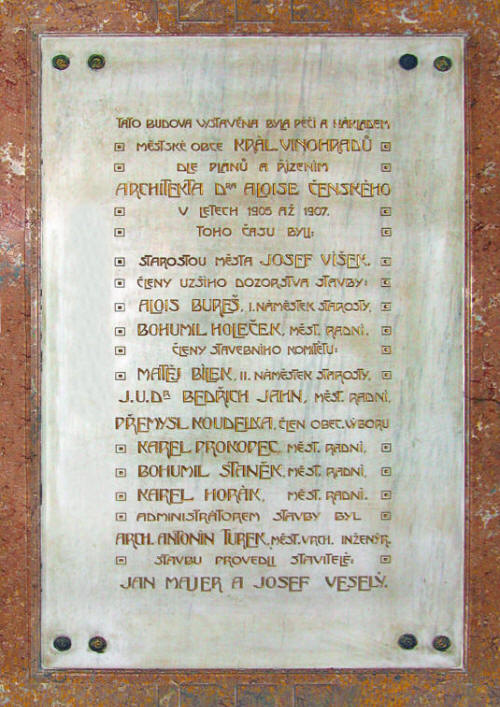 TATO BUDOVA VYSTAVĚNA BYLA PÉČÍ A NÁKLADEM
MĚSTSKÉ OBCE KRÁL. VINOHRADŮ
DLE PLÁNŮ A ŘÍZENÍM
ARCHITEKTA DRA ALOISE ČENSKÉHO
V LETECH 1905 AŽ 1907.
TOHO ČASU BYLI:
STAROSTOU MĚSTA JOSEF VÍŠEK.
ČLENY UZŠÍHO DOZORSTVA STAVBY:
ALOIS BUREŠ, I. NÁMĚSTEK STAROSTY,
BOHUMIL HOLEČEK, MĚST. RADNÍ.
ČLENY STAVEBNÍHO KOMITÉTU:
MATĚJ BÍLEK, II. NÁMĚSTEK STAROSTY,
J.U.DR. BEDŘICH JAHN, MĚST. RADNÍ,
PŘEMYSL KOUDELKA, ČLEN OBEC. VÝBORU
KAREL PROKOPEC, MĚST. RADNÍ,
BOHUMIL STANĚK, MĚST. RADNÍ,
KAREL HORÁK, MĚST. RADNÍ.
ADMINISTRÁTOREM STAVBY BYL
ARCH. ANTONÍN TUREK, MĚST. VRCH. INŽENÝR.
STAVBU PROVEDLI STAVITELÉ:
JAN MAJER A JOSEF VESELÝ.